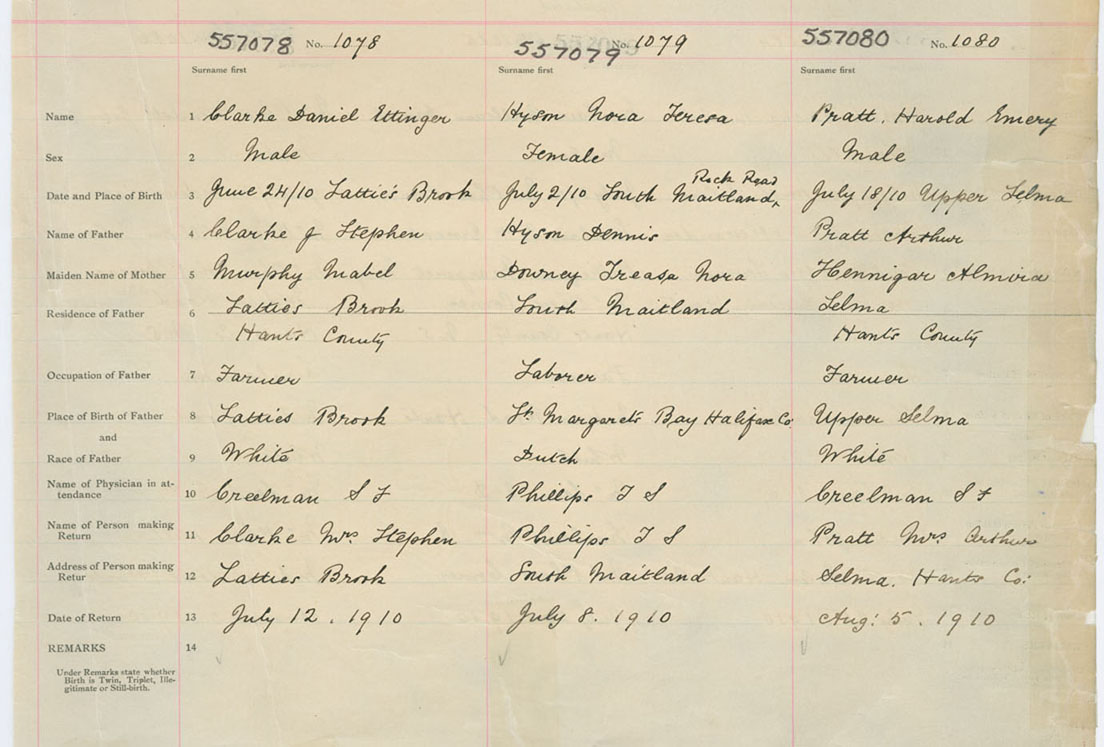 557078 No. 1078 557079 No. 1079 557080 No. 1080
Surname first Surname first Surname first
Name 1 Clarke Daniel Ettinger Hyson Nora Teresa Pratt. Harold Emery
Sex 2 Male Female Male
Rock Road
Date and Place of Birth 3 June 24/10 Lattie's Brook July 2/10 South Maitland, July 18/10 Upper Selma
Name of Father 4 Clarke J Stephen Hyson Dennis Pratt Arthur
Maiden Name of Mother 5 Murphy Mabel Downey Treasa Nora Hennigar Almira
Residence of Father 6 Latties Brook South Maitland Selma
Hants County Hants County
Occupation of Father 7 Farmer Laborer Farmer
Place of Birth of Father 8 Latties Brook St Margarets Bay Halifax Co Upper Selma
and
Race of Father 9 White Dutch White
Name of Physician in at-
tendance 10 Creelman S F Phillips T S Creelman S F
Name of Person making
Return 11 Clarke Mrs Stephen Phillips T S Pratt Mrs Arthur
Address of Person making
Retur 12 Latties Brook South Maitland Selma. Hants Co:
Date of Return 13 July 12. 1910 July 8. 1910 Aug: 5. 1910
REMARKS 14
Under Remarks state whether
Birth is Twin, Triplet, Ille-
gitimate or Still-birth.